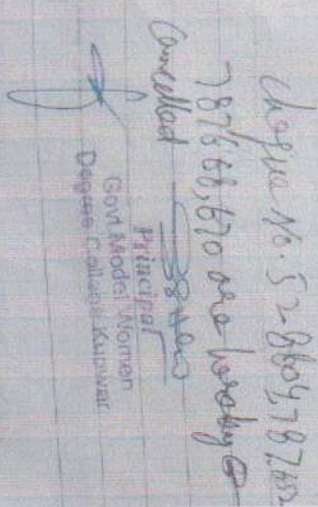 Cheque No. 528604, 787662
787668, 670 are hereby
Cancelled
Principal
Govt Model Women
Degree College Kupwar